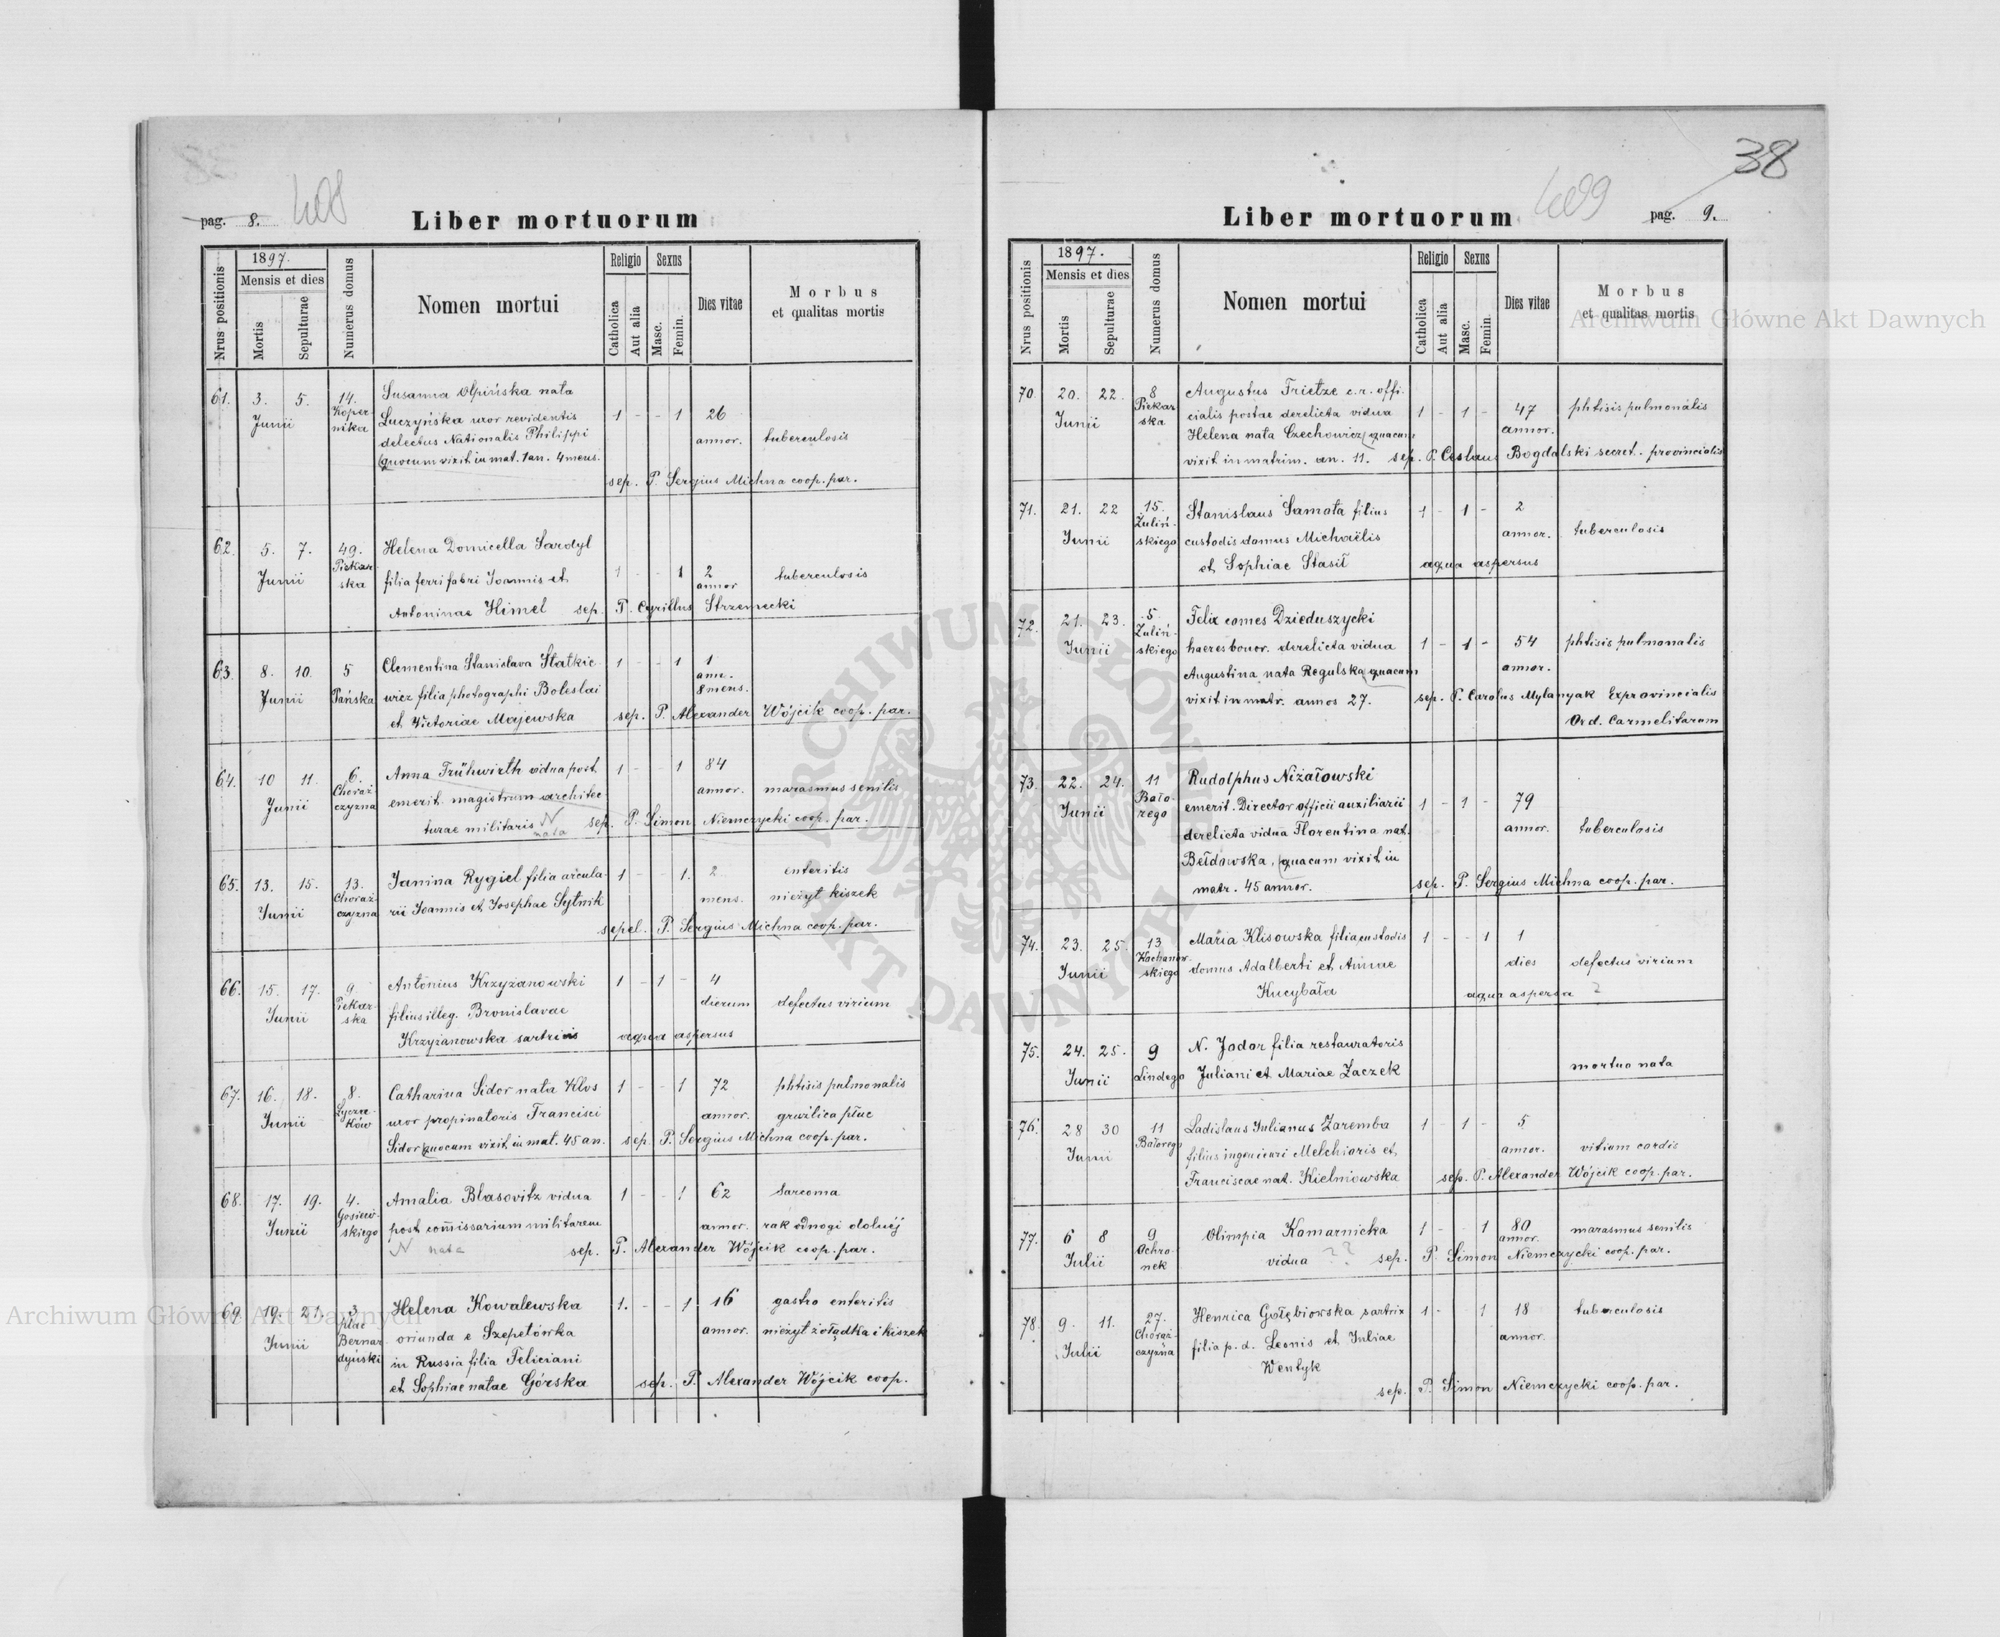 38
pag. 8.
Liber mortuorum
Nrus positionis
1897.
Mensis et dies
Mortis
Sepulturae
Numerus domus
Nomen mortui
Religio
Catholica
Aut alia
Sexus
Masc.
Femin.
Dies vitae
Morbus
et qualitas mortis
61. 3. 5. Junii 14. Koper-
nika
Susanna Olpińska nata
Luczyńska uxor revidentis
delectus Nationalis Philippi
quocum vixit in mat. 1 an. 4 mens.
1 - - 1 26
annor. tuberculosis
sep. P. Sergius Michna coop. par.
62. 5. 7. Junii 49. Piekar-
ska
Helena Domicella Sardyl
filia ferri fabri Joannis et
Antoninae Himel sep. P. Cyrillus Strzemecki
1 - - 1 2
annor tuberculosis
63. 8. 10. Junii 5 Pańska
Clementina Stanislava Statkie-
wicz filia photographi Boleslai
et Victoriae Majewska
1 - - 1 1
ann.
8 mens.
sep. P. Alexander Wójcik coop. par.
64. 10 11. Junii 6. Chorąż-
czyzna
Anna Frühwirth vidua post
emerit. magistrum architec-
turae militaris N nata sep. P. Simon Niemczycki coop. par.
1 - - 1 84
annor. marasmus senilis
65. 13. 15. Junii 13. Chorąż-
czyzna
Janina Rygiel filia
rii Joannis et Josephae Sytnik
1 - - 1. 2
mens.
enteritis
nieżyt kiszek
sepel. P. Sergius Michna coop. par.
66. 15. 17. Junii 9. Piekar-
ska
Antonius Krzyżanowski
filius illeg. Bronislavae
Krzyżanowska sartricis
1 - 1 - 4
dierum defectus virium
aqua aspersus
67. 16. 18. Junii 8. Łycza-
ków
Catharina Sidor nata Klos
uxor propinatoris Francisci
Sidor quocum vixit in mat. 45 an.
1 - - 1 72
annor.
phtisis pulmonalis
gruźlica płuc
sep. P. Sergius Michna coop. par.
68. 17. 19. Junii 4. Gosiew-
skiego
Amalia Blasovitz vidua
post comissarium militarem
N nata sep. P. Alexander Wójcik coop. par.
1 - - 1 62
annor.
Sarcoma
rak odnogi dolnéj
69. 19. 21. Junii 3 plac
Bernar-
dyński
Helena Kowalewska
oriunda e Szepetówka
in Russia filia Feliciani
et Sophiae natae Górska
1. - - 1 16
annor.
gastro enteritis
nieżyt żołądka i kiszek
sep. P. Alexander Wójcik coop.
Liber mortuorum
pag. 9.
Nrus positionis
1897.
Mensis et dies
Mortis
Sepulturae
Numerus domus
Nomen mortui
Religio
Catholica
Aut alia
Sexus
Masc.
Femin.
Dies vitae
Morbus
et qualitas mortis
70. 20. 22. Junii 8 Piekar
ska
Augustus Frietze c.r. offi-
cialis postae derelicta vidua
Helena nata Czechowicz quacum
vixit in matrim. an. 11. sep. P. Ceslaus Bogdalski secret. provincialis
1 - 1 - 47
annor. phtisis pulmonalis
71. 21. 22 Junii 15. Żuliń-
skiego
Stanislaus Samota filius
custodis domus Michaëlis
et Sophiae Stasił
1 - 1 - 2
annor. tuberculosis
aqua aspersus
72. 21. 23. Junii 5. Żuliń-
skiego
Felix comes Dzieduszycki
haeres bonor. derelicta vidua
Augustina nata Regulska quacum
vixit in matr. annos 27.
1 - 1 - 54
annor. phtisis pulmonalis
sep. P. Carolus Mylanyak Exprovincialis
Ord. Carmelitarum
73. 22. 24. Junii 11 Bato-
rego
Rudolphus Niżałowski
emerit. Director officii auxiliarii
derelicta vidua Florentina nat.
Bełdowska, quacum vixit in
matr. 45 annor.
1 - 1 - 79
annor. tuberculosis
sep. P. Sergius Michna coop. par.
74. 23. 25. Junii 13 Kochanow-
skiego
Maria Klisowska filia custodis
domus Adalberti et Annae
Kucybała
1 - - 1 1
dies defectus virium
aqua aspersa ?
75. 24. 25. Junii 9 Lindego
N. Jodor filia restauratoris
Juliani et Mariae Zaczek
mortuo nata
76. 28 30 Junii 11 Batorego
Ladislaus Julianus Zaremba
filius ingenieuri Melchioris et
Franciscae nat. Kielniowska
1 - 1 - 5
annor. vitium cordis
sep. P. Alexander Wójcik coop. par.
77. 6 8 Julii 9 Ochro-
nek
Olimpia Komarnicka
vidua ?? sep. P. Simon Niemczycki coop. par.
1 - - 1 80
annor. marasmus senilis
78. 9. 11. Julii 27. Chorąż-
czyzna
Henrica Gołębiowska sartrix
filia p. d. Leonis et Juliae
Wentyk
1 - 1 18
annor. tuberculosis
sep. P. Simon Niemczycki coop. par.
Archiwum Główne Akt Dawnych
Archiwum Główne Akt Dawnych
ARCHIWUM GŁÓWNE AKT DAWNYCH